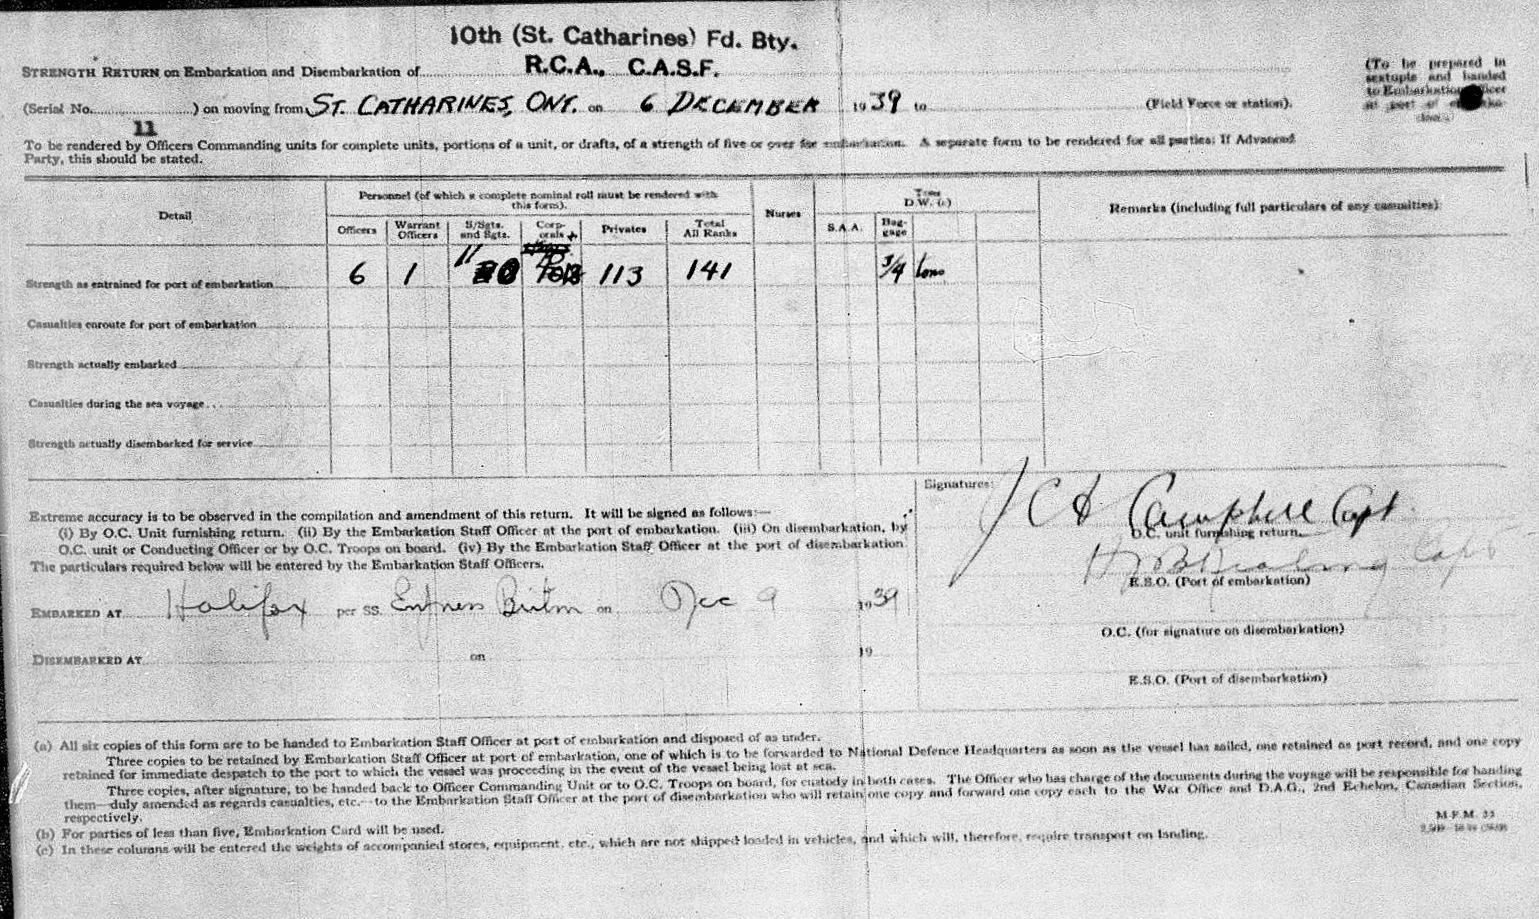 10th (St. Catharines) Fd. Bty.
R.C.A., C.A.S.F.
STRENGTH RETURN on Embarkation and Disembarkation of
(To be prepared in
sextuple and handed
to Embarkation Officer
at port of
(Serial No. ) on moving from ST. CATHARINES, ONT. on 6 DECEMBER 1939 to (Field Force or station).
11
To be rendered by Officers Commanding units for complete units, portions of a unit, or drafts, of a strength of five or over for embarkation. A separate form to be rendered for all parties; If Advanced
Party, this should be stated.
Detail
Personnel (of which a complete nominal roll must be rendered with
this form).
Officers
Warrant
Officers
S/Sgts.
and Sgts.
Corp-
orals
Privates
Total
All Ranks
Nurses
Tons
D.W. (c)
S.A.A.
Bag-
gage
Remarks (including full particulars of any casualties)
Strength as entrained for port of embarkation 6 1 11 10 113 141 3/4 tons
Casualties enroute for port of embarkation
Strength actually embarked
Casualties during the sea voyage
Strength actually disembarked for service
Extreme accuracy is to be observed in the compilation and amendment of this return. It will be signed as follows:—
(i) By O.C. Unit furnishing return. (ii) By the Embarkation Staff Officer at the port of embarkation. (iii) On disembarkation, by
O.C. unit or Conducting Officer or by O.C. Troops on board. (iv) By the Embarkation Staff Officer at the port of disembarkation.
The particulars required below will be entered by the Embarkation Staff Officers.
EMBARKED AT Halifax per SS. Empress Britn on Dec 9 1939
DISEMBARKED AT on 19
Signatures:
Campbell Capt
O.C. unit furnishing return.
Capt
E.S.O. (Port of embarkation)
O.C. (for signature on disembarkation)
E.S.O. (Port of disembarkation)
(a) All six copies of this form are to be handed to Embarkation Staff Officer at port of embarkation and disposed of as under.
Three copies to be retained by Embarkation Staff Officer at port of embarkation, one of which is to be forwarded to National Defence Headquarters as soon as the vessel has sailed, one retained as port record, and one copy
retained for immediate despatch to the port to which the vessel was proceeding in the event of the vessel being lost at sea.
Three copies, after signature, to be handed back to Officer Commanding Unit or to O.C. Troops on board, for custody in both cases. The Officer who has charge of the documents during the voyage will be responsible for handing
them—duly amended as regards casualties, etc.—to the Embarkation Staff Officer at the port of disembarkation who will retain one copy and forward one copy each to the War Office and D.A.G., 2nd Echelon, Canadian Section,
respectively.
(b) For parties of less than five, Embarkation Card will be used.
(c) In these columns will be entered the weights of accompanied stores, equipment, etc., which are not shipped loaded in vehicles, and which will, therefore, require transport on landing.
M.F.M. 33